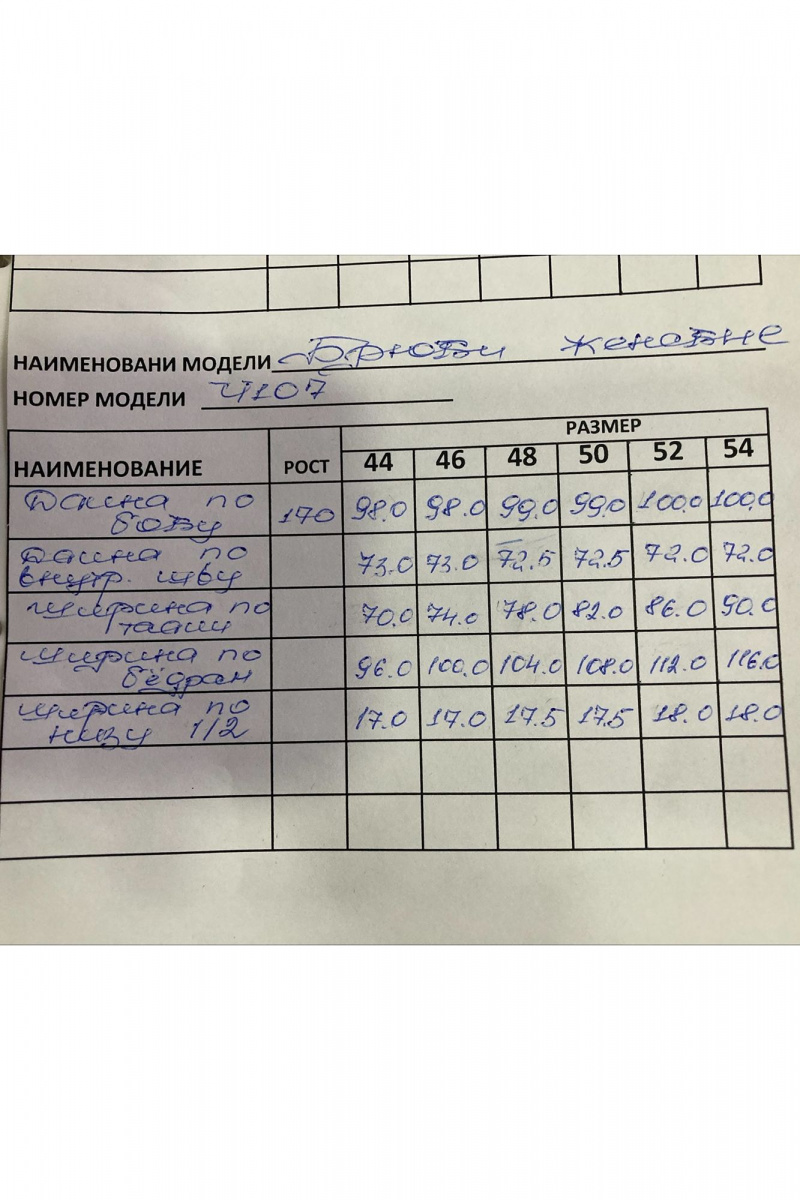 НАИМЕНОВАНИ МОДЕЛИ Брюки женские
НОМЕР МОДЕЛИ 4107
РАЗМЕР
НАИМЕНОВАНИЕ РОСТ 44 46 48 50 52 54
Длина по боку 170 98.0 98.0 99.0 99.0 100.0 100.0
Длина по внутр. шву 73.0 73.0 72.5 72.5 72.0 72.0
Ширина по талии 70.0 74.0 78.0 82.0 86.0 90.0
Ширина по бёдрам 96.0 100.0 104.0 108.0 112.0 116.0
Ширина по низу 1/2 17.0 17.0 17.5 17.5 18.0 18.0